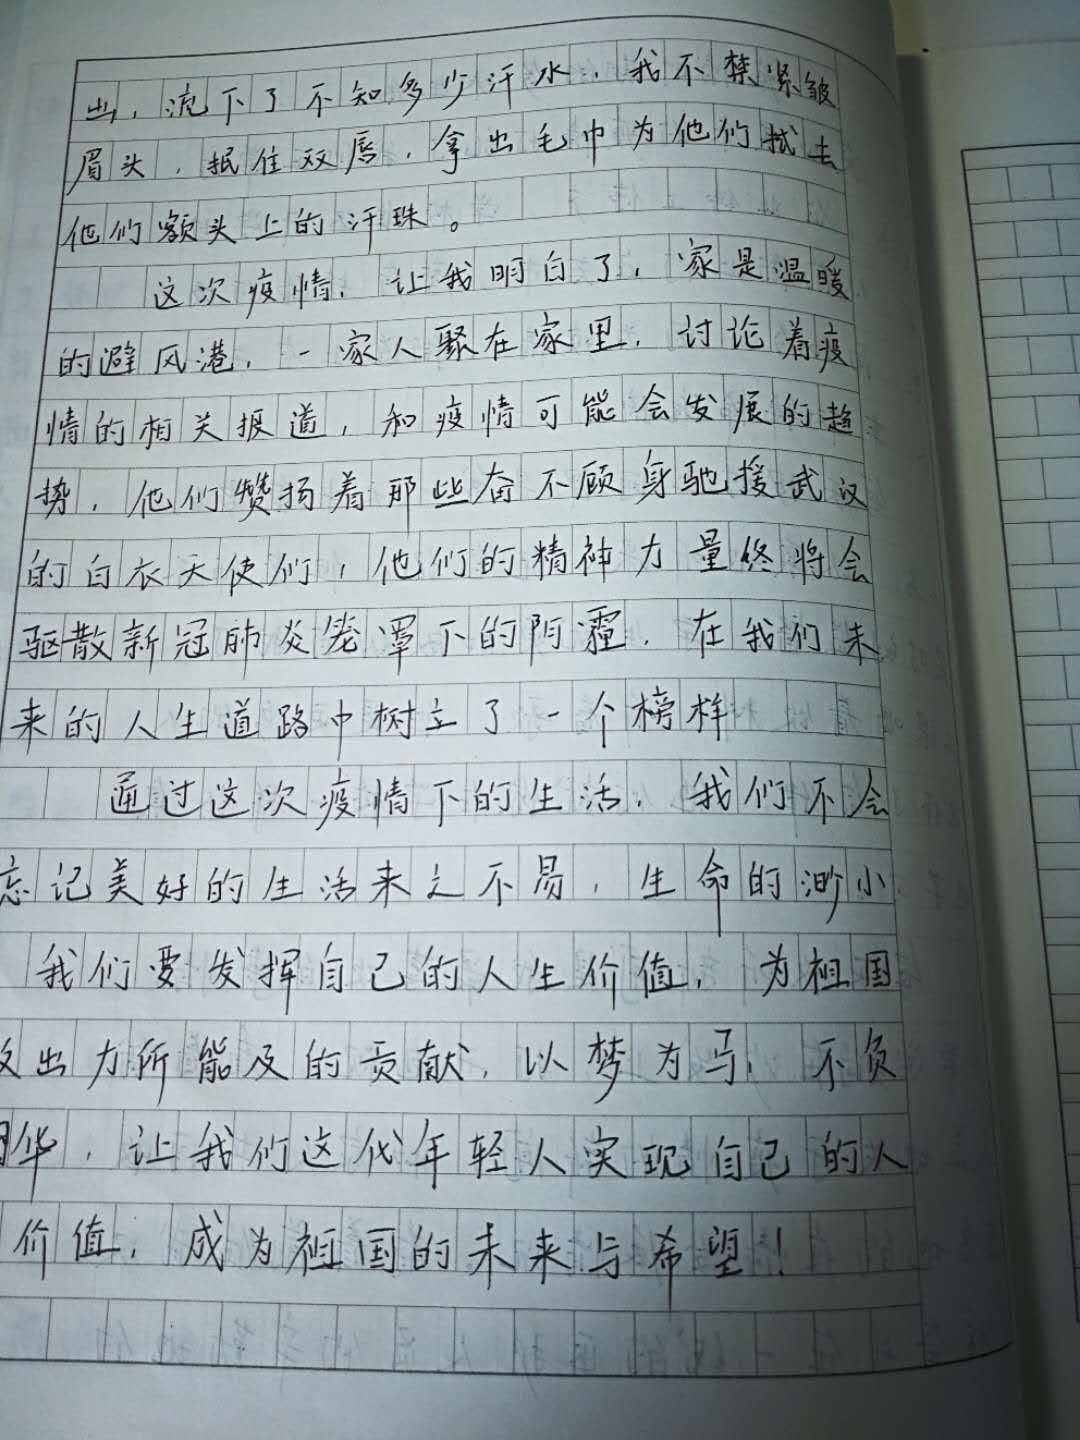 出，流下了不知多少汗水，我不禁紧皱
眉头，抿住双唇，拿出毛巾为他们拭去
他们额头上的汗珠。
这次疫情，让我明白了，家是温暖
的避风港，一家人聚在家里，讨论着疫
情的相关报道，和疫情可能会发展的趋
势，他们赞扬着那些奋不顾身驰援武汉
的白衣天使们，他们的精神力量终将会
驱散新冠肺炎笼罩下的阴霾，在我们未
来的人生道路中树立了一个榜样
通过这次疫情下的生活，我们不会
忘记美好的生活来之不易，生命的渺小
我们要发挥自己的人生价值，为祖国
出力所能及的贡献，以梦为马，不负
华，让我们这代年轻人实现自己的人
价值，成为祖国的未来与希望！